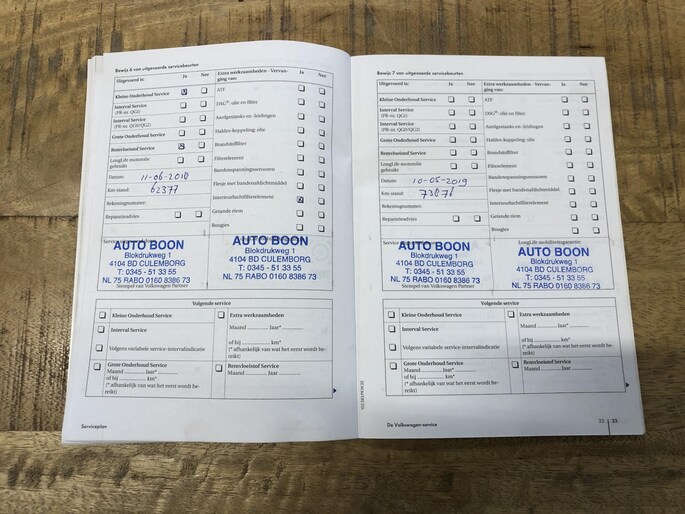 Bewijs 6 van uitgevoerde servicebeurten
Uitgevoerd is: Ja Nee
Kleine Onderhoud Service
Interval Service
(PR-nr. QG1)
Interval Service
(PR-nr. QG0/QG2)
Grote Onderhoud Service
Remvloeistof Service
LongLife motorolie
gebruikt
Datum: 11-06-2018
Km-stand: 62377
Rekeningnummer:
Reparatieadvies
Extra werkzaamheden - Vervan-
ging van: Ja Nee
ATF
DSG®-olie en filter
Aardgastanks en -leidingen
Haldex-koppeling: olie
Brandstoffilter
Filterelement
Bandenspanningssensoren
Flesje met bandenafdichtmiddel
Interieurluchtfilterelement
Getande riem
Bougies
AUTO BOON
Blokdrukweg 1
4104 BD CULEMBORG
T: 0345 - 51 33 55
NL 75 RABO 0160 8386 73
Stempel van Volkswagen Partner
AUTO BOON
Blokdrukweg 1
4104 BD CULEMBORG
T: 0345 - 51 33 55
NL 75 RABO 0160 8386 73
Volgende service
Kleine Onderhoud Service
Interval Service
Volgens variabele service-intervalindicatie
Grote Onderhoud Service
Maand Jaar*
of bij km*
(* afhankelijk van wat het eerst wordt be-
reikt)
Extra werkzaamheden
Maand Jaar*
of bij km*
(* afhankelijk van wat het eerst wordt be-
reikt)
Remvloeistof Service
Maand Jaar*
Serviceplan
Bewijs 7 van uitgevoerde servicebeurten
Uitgevoerd is: Ja Nee
Kleine Onderhoud Service
Interval Service
(PR-nr. QG1)
Interval Service
(PR-nr. QG0/QG2)
Grote Onderhoud Service
Remvloeistof Service
LongLife motorolie
gebruikt
Datum: 10-05-2019
Km-stand: 73076
Rekeningnummer:
Reparatieadvies
Extra werkzaamheden - Vervan-
ging van: Ja Nee
ATF
DSG®-olie en filter
Aardgastanks en -leidingen
Haldex-koppeling: olie
Brandstoffilter
Filterelement
Bandenspanningssensoren
Flesje met bandenafdichtmiddel
Interieurluchtfilterelement
Getande riem
Bougies
AUTO BOON
Blokdrukweg 1
4104 BD CULEMBORG
T: 0345 - 51 33 55
NL 75 RABO 0160 8386 73
Stempel van Volkswagen Partner
LongLife mobiliteitsgarantie:
AUTO BOON
Blokdrukweg 1
4104 BD CULEMBORG
T: 0345 - 51 33 55
NL 75 RABO 0160 8386 73
Volgende service
Kleine Onderhoud Service
Interval Service
Volgens variabele service-intervalindicatie
Grote Onderhoud Service
Maand Jaar*
of bij km*
(* afhankelijk van wat het eerst wordt be-
reikt)
Extra werkzaamheden
Maand Jaar*
of bij km*
(* afhankelijk van wat het eerst wordt be-
reikt)
Remvloeistof Service
Maand Jaar*
De Volkswagen-service
22 23